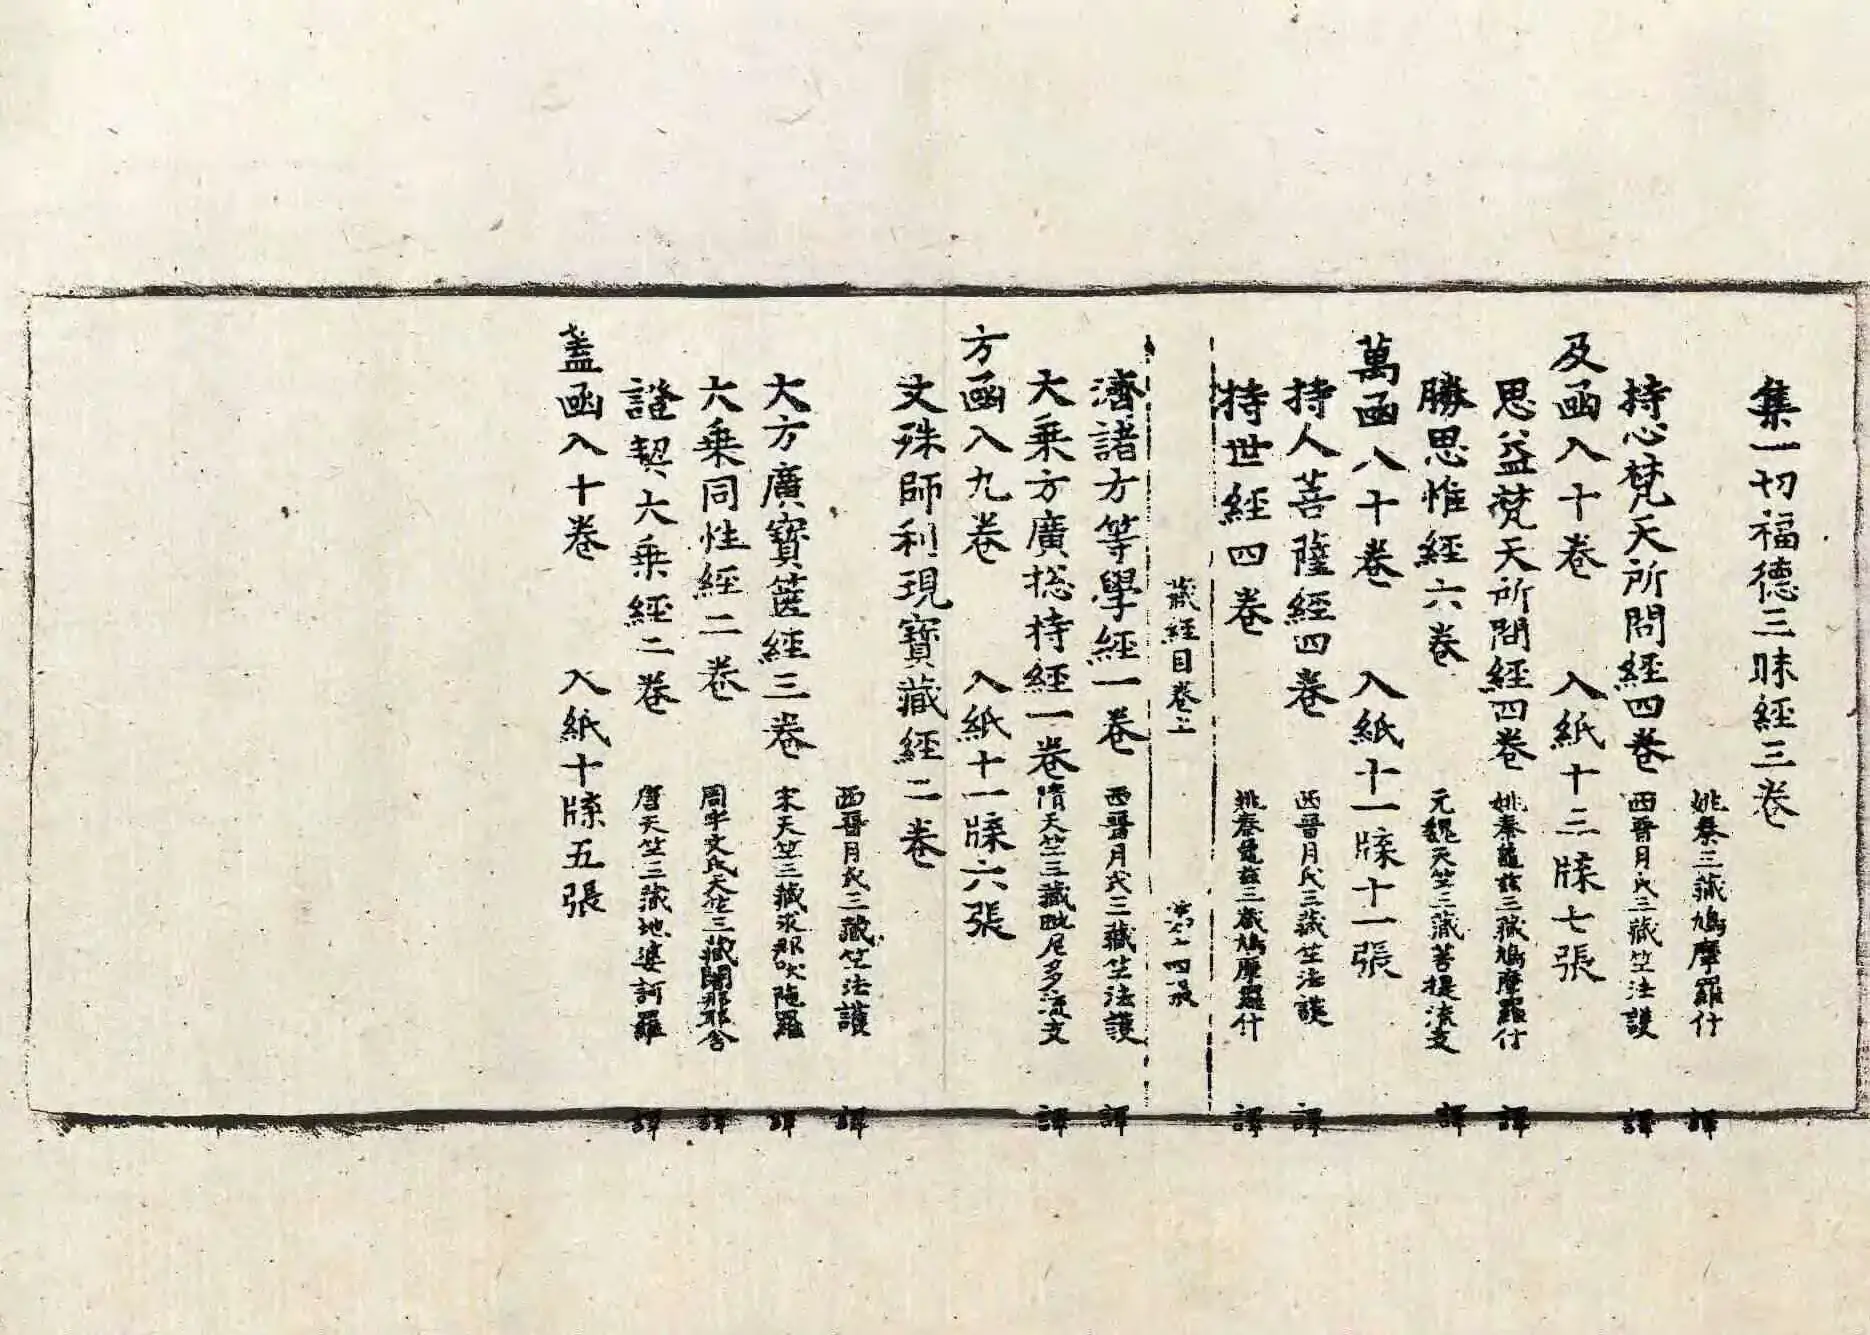 集一切福德三昧經三卷
姚秦三藏鳩摩羅什 譯
持心梵天所問經四卷 西晉月氏三藏竺法護 譯
及函入十卷 入紙十三牒七張
思益梵天所問經四卷 姚秦龜兹三藏鳩摩羅什 譯
勝思惟經六卷 元魏天竺三藏菩提流支 譯
萬函八十卷 入紙十一牒十一張
持人菩薩經四卷 西晉月氏三藏竺法護 譯
持世經四卷 姚秦龜兹三藏鳩摩羅什 譯
藏經目卷上 四張
濟諸方等學經一卷 西晉月氏三藏竺法護 譯
大乘方廣捴持經一卷 隋天竺三藏毗尼多流支 譯
方函入九卷 入紙十一牒六張
文殊師利現寶藏經二卷
西晉月氏三藏竺法護 譯
大方廣寶篋經三卷 宋天竺三藏求那跋陁羅 譯
大乘同性經二卷 周宇文氏天竺三藏闍那耶舍 譯
證契大乘經二卷 唐天竺三藏地婆訶羅 譯
盖函入十卷 入紙十牒五張